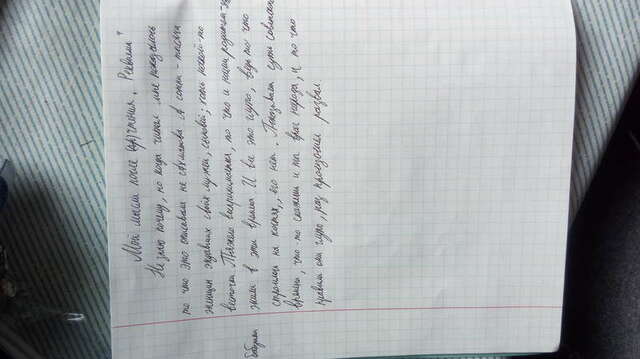 Мои мысли после прочтения „Реквиема"
Не знаю почему, но когда читал мне показалось
то что это описывала не Ахматова А сотни - тысячи
женщин ждавших своих мужей, сыновей; хоть какой-то
весточки. Тяжело воспринимается, то что и наши родители -
бабушки жили в эти времена. И все это глупо, ведь то что
строилось на костях, его нет. Показывает суть советского
времени, что-то скажешь и ты враг народа, и то что
правили они глупо, раз произошел развал